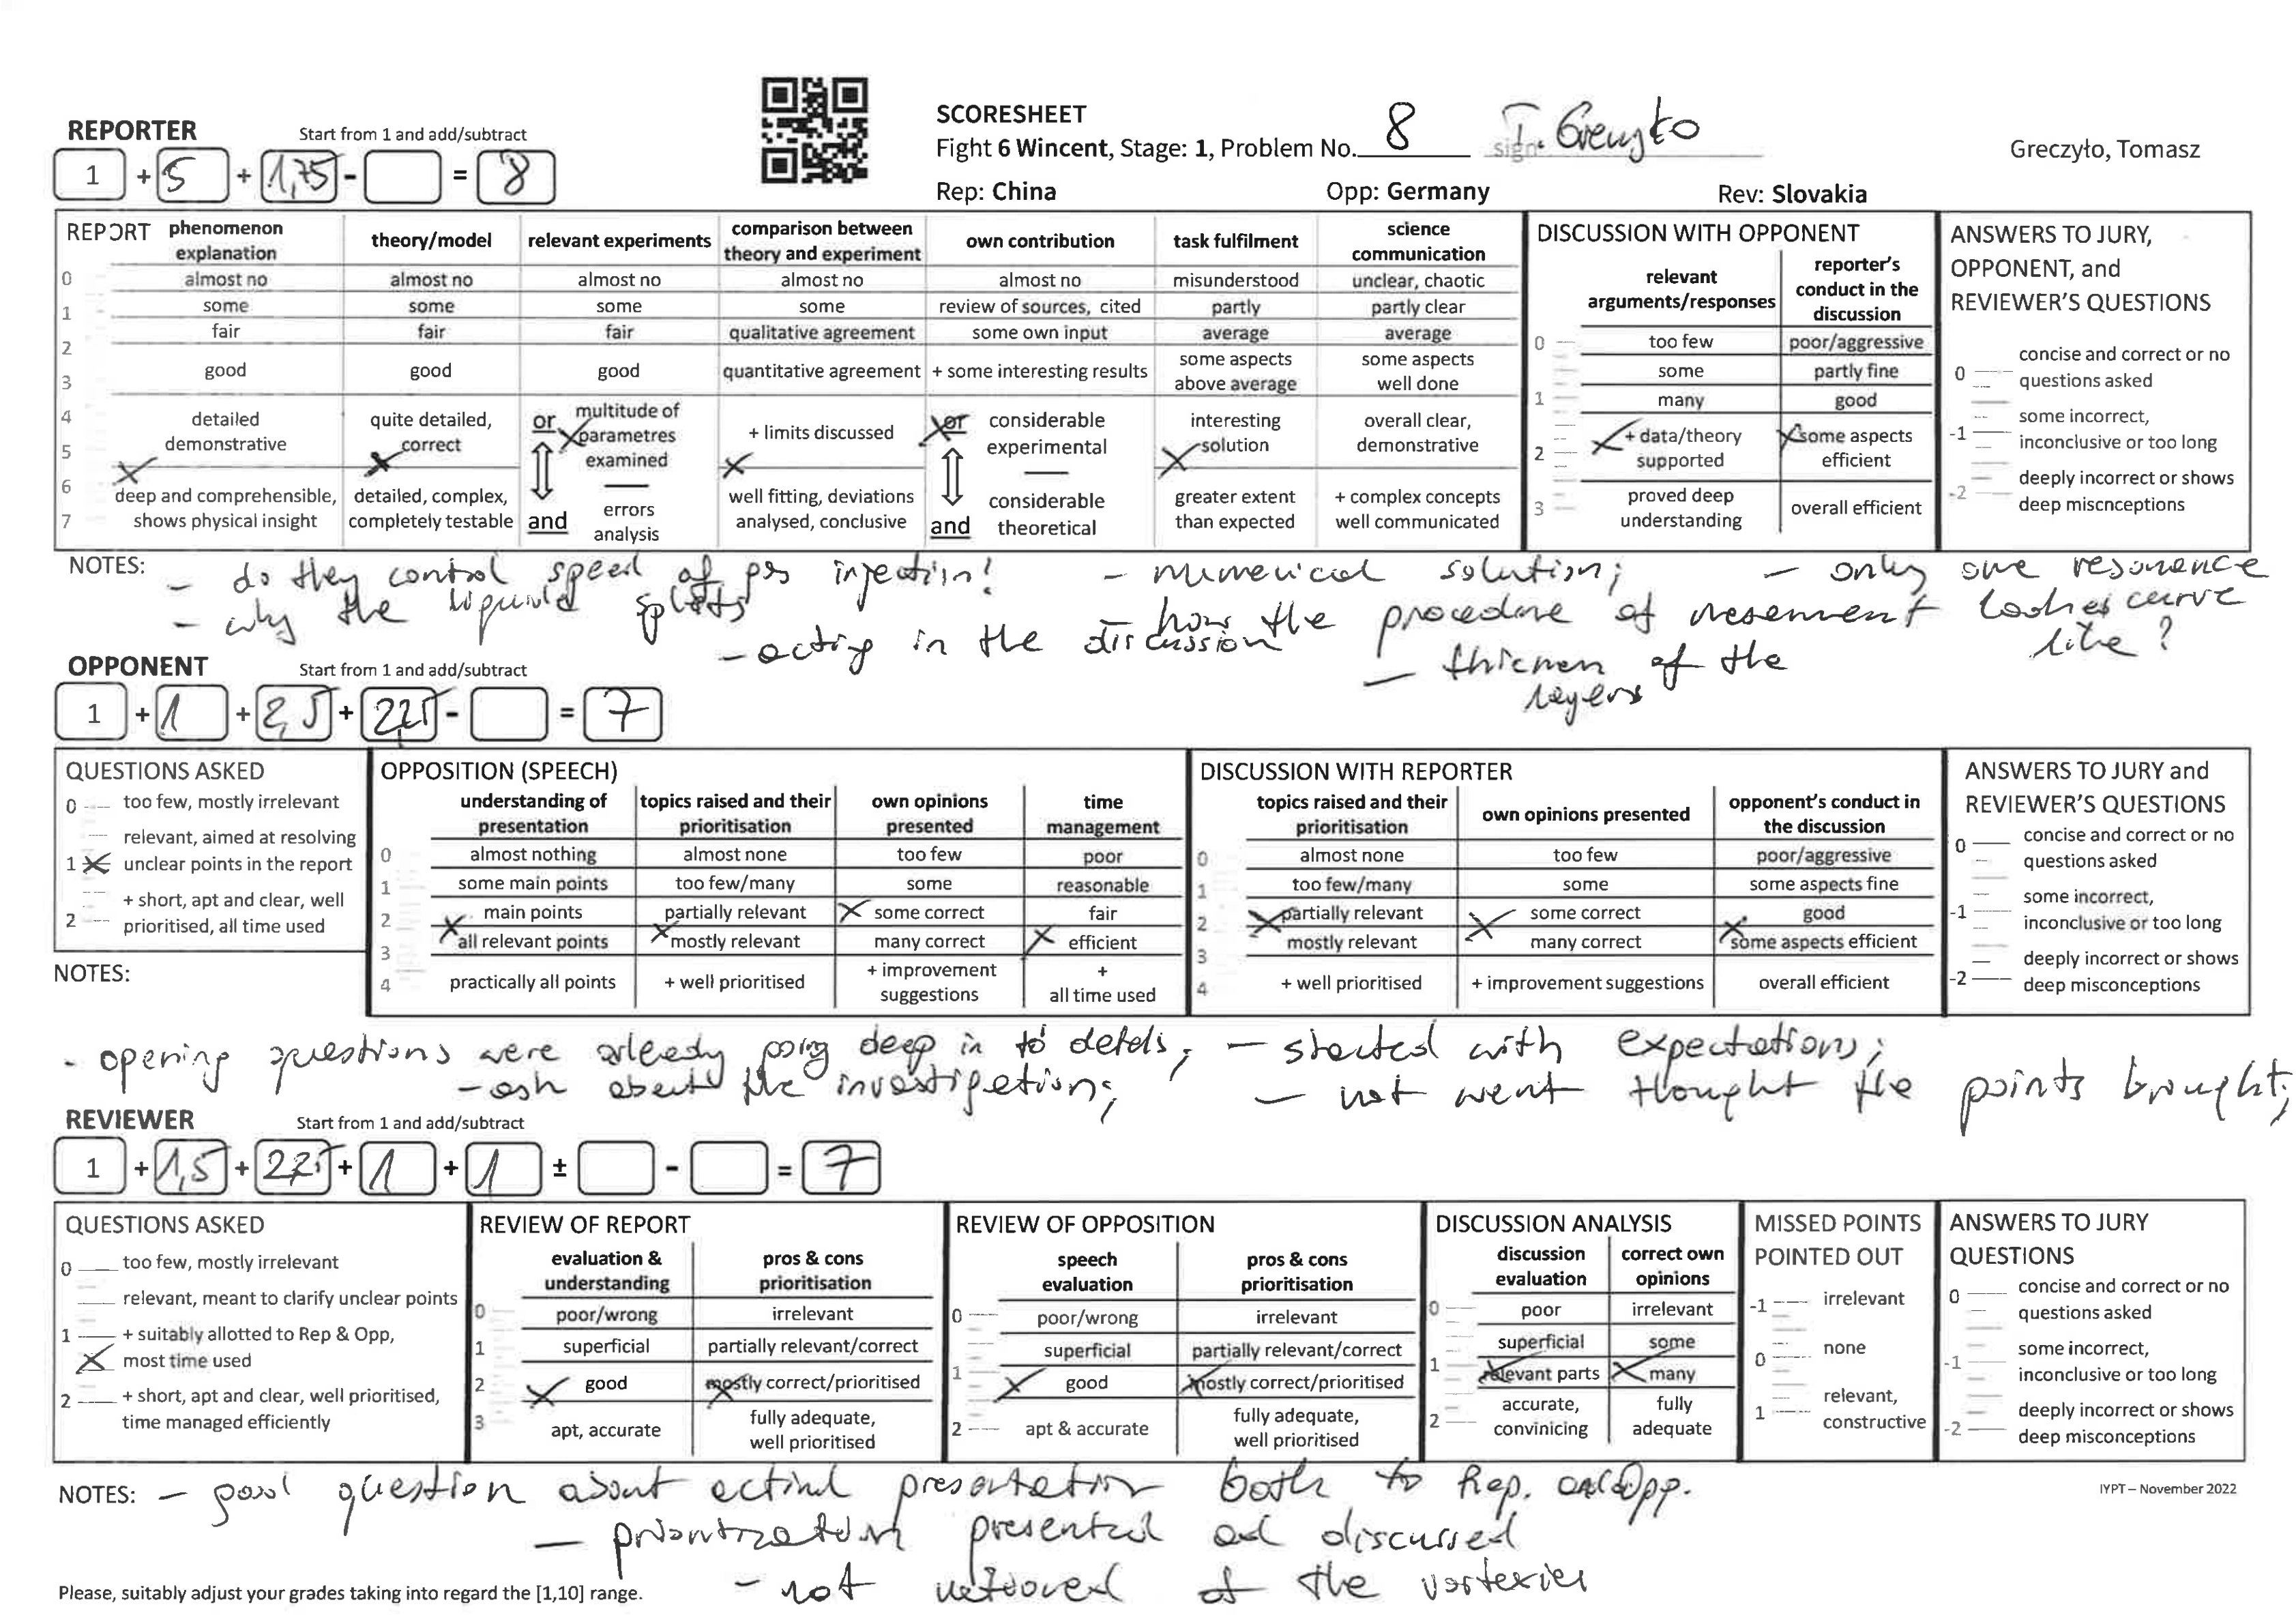 SCORESHEET
Fight 6 Wincent, Stage: 1, Problem No. 8 sign. T. Greczyło
Greczyło, Tomasz
Rep: China Opp: Germany Rev: Slovakia
REPORTER Start from 1 and add/subtract
1 + 5 + 1,75 - = 8
REPORT
phenomenon explanation
theory/model
relevant experiments
comparison between theory and experiment
own contribution
task fulfilment
science communication
0 almost no almost no almost no almost no almost no misunderstood unclear, chaotic
1 some some some some review of sources, cited partly partly clear
2 fair fair fair qualitative agreement some own input average average
3 good good good quantitative agreement + some interesting results some aspects above average some aspects well done
4 detailed demonstrative quite detailed, correct or multitude of parametres examined + limits discussed or considerable experimental interesting solution overall clear, demonstrative
5
6 deep and comprehensible, shows physical insight detailed, complex, completely testable and errors analysis well fitting, deviations analysed, conclusive and considerable theoretical greater extent than expected + complex concepts well communicated
7
DISCUSSION WITH OPPONENT
relevant arguments/responses
reporter's conduct in the discussion
0 too few poor/aggressive
some partly fine
1 many good
2 + data/theory supported some aspects efficient
3 proved deep understanding overall efficient
ANSWERS TO JURY, OPPONENT, and REVIEWER'S QUESTIONS
0 concise and correct or no questions asked
-1 some incorrect, inconclusive or too long
-2 deeply incorrect or shows deep miscnceptions
NOTES:
- do they control speed of injection!
- why the liquid splits
- acting in the discussion
- numerical solution;
- how the procedure of
- of the layers
- only one resonance curve like?
OPPONENT Start from 1 and add/subtract
1 + 1 + 2,5 + 2,25 - = 7
QUESTIONS ASKED
0 too few, mostly irrelevant
relevant, aimed at resolving
1 unclear points in the report
+ short, apt and clear, well
2 prioritised, all time used
OPPOSITION (SPEECH)
understanding of presentation
topics raised and their prioritisation
own opinions presented
time management
0 almost nothing almost none too few poor
1 some main points too few/many some reasonable
2 main points partially relevant some correct fair
all relevant points mostly relevant many correct efficient
3
4 practically all points + well prioritised + improvement suggestions + all time used
DISCUSSION WITH REPORTER
topics raised and their prioritisation
own opinions presented
opponent's conduct in the discussion
0 almost none too few poor/aggressive
1 too few/many some some aspects fine
2 partially relevant some correct good
mostly relevant many correct some aspects efficient
3
4 + well prioritised + improvement suggestions overall efficient
ANSWERS TO JURY and REVIEWER'S QUESTIONS
0 concise and correct or no questions asked
-1 some incorrect, inconclusive or too long
-2 deeply incorrect or shows deep misconceptions
NOTES:
- opening questions were going deep in to
- ask about the investigation;
- started with expectations;
- not went thought the points brought;
REVIEWER Start from 1 and add/subtract
1 + 1,5 + 2,25 + 1 + 1 ± - = 7
QUESTIONS ASKED
0 too few, mostly irrelevant
relevant, meant to clarify unclear points
1 + suitably allotted to Rep & Opp,
most time used
2 + short, apt and clear, well prioritised,
time managed efficiently
REVIEW OF REPORT
evaluation & understanding
pros & cons prioritisation
0 poor/wrong irrelevant
1 superficial partially relevant/correct
2 good mostly correct/prioritised
3 apt, accurate fully adequate, well prioritised
REVIEW OF OPPOSITION
speech evaluation
pros & cons prioritisation
0 poor/wrong irrelevant
superficial partially relevant/correct
1 good mostly correct/prioritised
2 apt & accurate fully adequate, well prioritised
DISCUSSION ANALYSIS
discussion evaluation
correct own opinions
0 poor irrelevant
superficial some
1 relevant parts many
2 accurate, convinicing fully adequate
MISSED POINTS POINTED OUT
-1 irrelevant
0 none
1 relevant, constructive
ANSWERS TO JURY QUESTIONS
0 concise and correct or no questions asked
-1 some incorrect, inconclusive or too long
-2 deeply incorrect or shows deep misconceptions
NOTES: - good question about presentation both to Rep. and Opp.
- prioritization presented ad discussed
- not of the vortexies
IYPT – November 2022
Please, suitably adjust your grades taking into regard the [1,10] range.